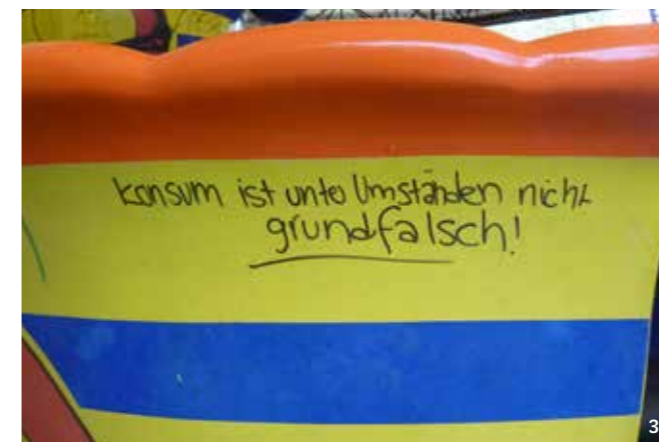 Konsum ist unte Umständen nicht
grundfalsch!
3